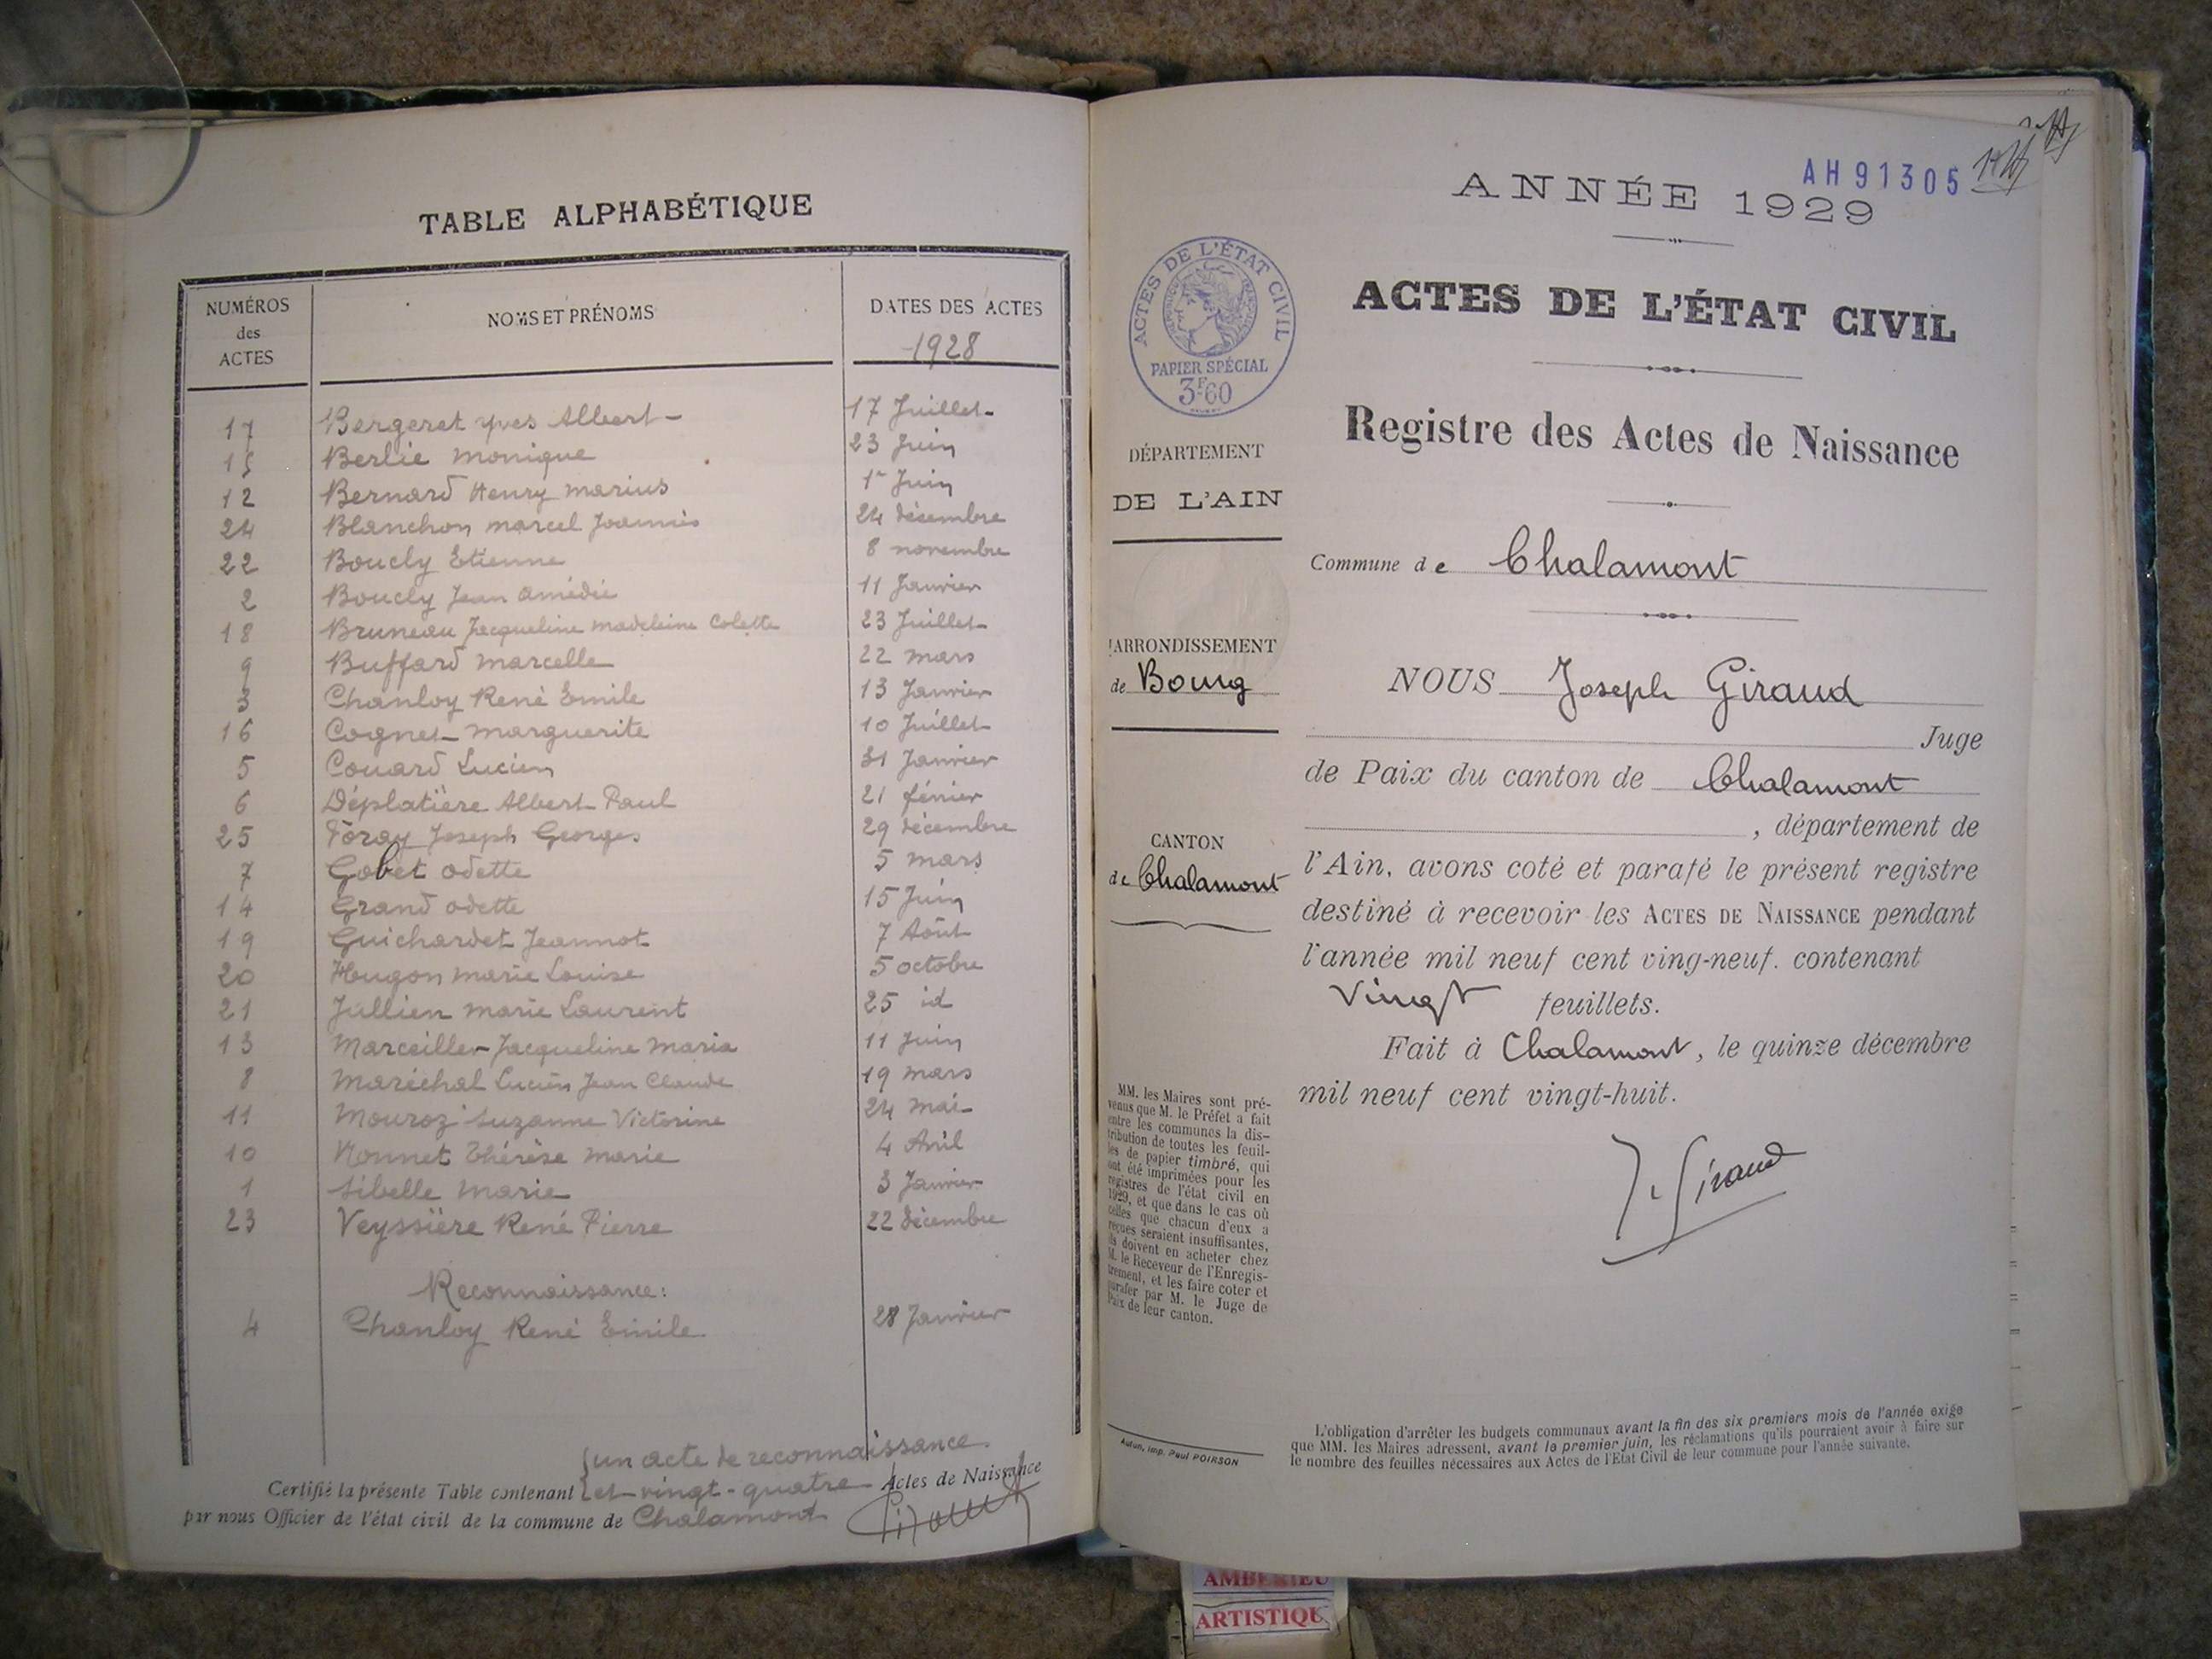 TABLE ALPHABÉTIQUE
NUMÉROS des ACTES
NOMS ET PRÉNOMS
DATES DES ACTES
1928
17 Bergeret Yves Albert 17 Juillet
15 Berlie Monique 23 Juin
12 Bernard Henry Marius 1er Juin
24 Blanchon Marcel Joannès 24 décembre
22 Boucly Etienne 8 novembre
2 Boucly Jean Amédée 11 Janvier
18 Bruneau Jacqueline Madeleine Colette 23 Juillet
9 Buffard Marcelle 22 mars
3 Chanloy René Emile 13 Janvier
16 Cognet Marguerite 10 Juillet
5 Couard Lucien 31 Janvier
6 Déplatière Albert Paul 21 février
25 Foray Joseph Georges 29 décembre
7 Gobet Odette 5 mars
14 Grand Odette 15 Juin
19 Guichardet Jeannot 7 Août
20 Hugon Marie Louise 5 octobre
21 Jullien Marie Laurent 25 id
13 Marceiller Jacqueline Maria 11 Juin
8 Maréchal Lucien Jean Claude 19 mars
11 Mouroz Suzanne Victorine 24 mai
10 Nonnet Thérèse Marie 4 Avril
1 Sibelle Marie 3 Janvier
23 Veyssière René Pierre 22 décembre
Reconnaissance:
4 Chanloy René Emile 28 Janvier
un acte de reconnaissance
Certifié la présente Table contenant et vingt-quatre Actes de Naissance
par nous Officier de l'état civil de la commune de Chalamont
AH 91305
ANNÉE 1929
ACTES DE L'ÉTAT CIVIL
PAPIER SPÉCIAL
3F60
ACTES DE L'ÉTAT CIVIL
Registre des Actes de Naissance
DÉPARTEMENT
DE L'AIN
Commune de Chalamont
ARRONDISSEMENT
de Bourg
CANTON
de Chalamont
NOUS Joseph Giraud
Juge
de Paix du canton de Chalamont
, département de
l'Ain, avons coté et parafé le présent registre
destiné à recevoir les ACTES DE NAISSANCE pendant
l'année mil neuf cent ving-neuf. contenant
Vingt feuillets.
Fait à Chalamont, le quinze décembre
mil neuf cent vingt-huit.
J. Giraud
MM. les Maires sont pré-
venus que M. le Préfet a fait
entre les communes la dis-
tribution de toutes les feuil-
les de papier timbré, qui
ont été imprimées pour les
registres de l'état civil en
1929, et que dans le cas où
celles que chacun d'eux a
reçues seraient insuffisantes,
ils doivent en acheter chez
M. le Receveur de l'Enregis-
trement, et les faire coter et
parafer par M. le Juge de
Paix de leur canton.
Autun, Imp. Paul POIRSON
L'obligation d'arrêter les budgets communaux avant la fin des six premiers mois de l'année exige
que MM. les Maires adressent, avant le premier juin, les réclamations qu'ils pourraient avoir à faire sur
le nombre des feuilles nécessaires aux Actes de l'Etat Civil de leur commune pour l'année suivante.
AMBERIEU
ARTISTIQU